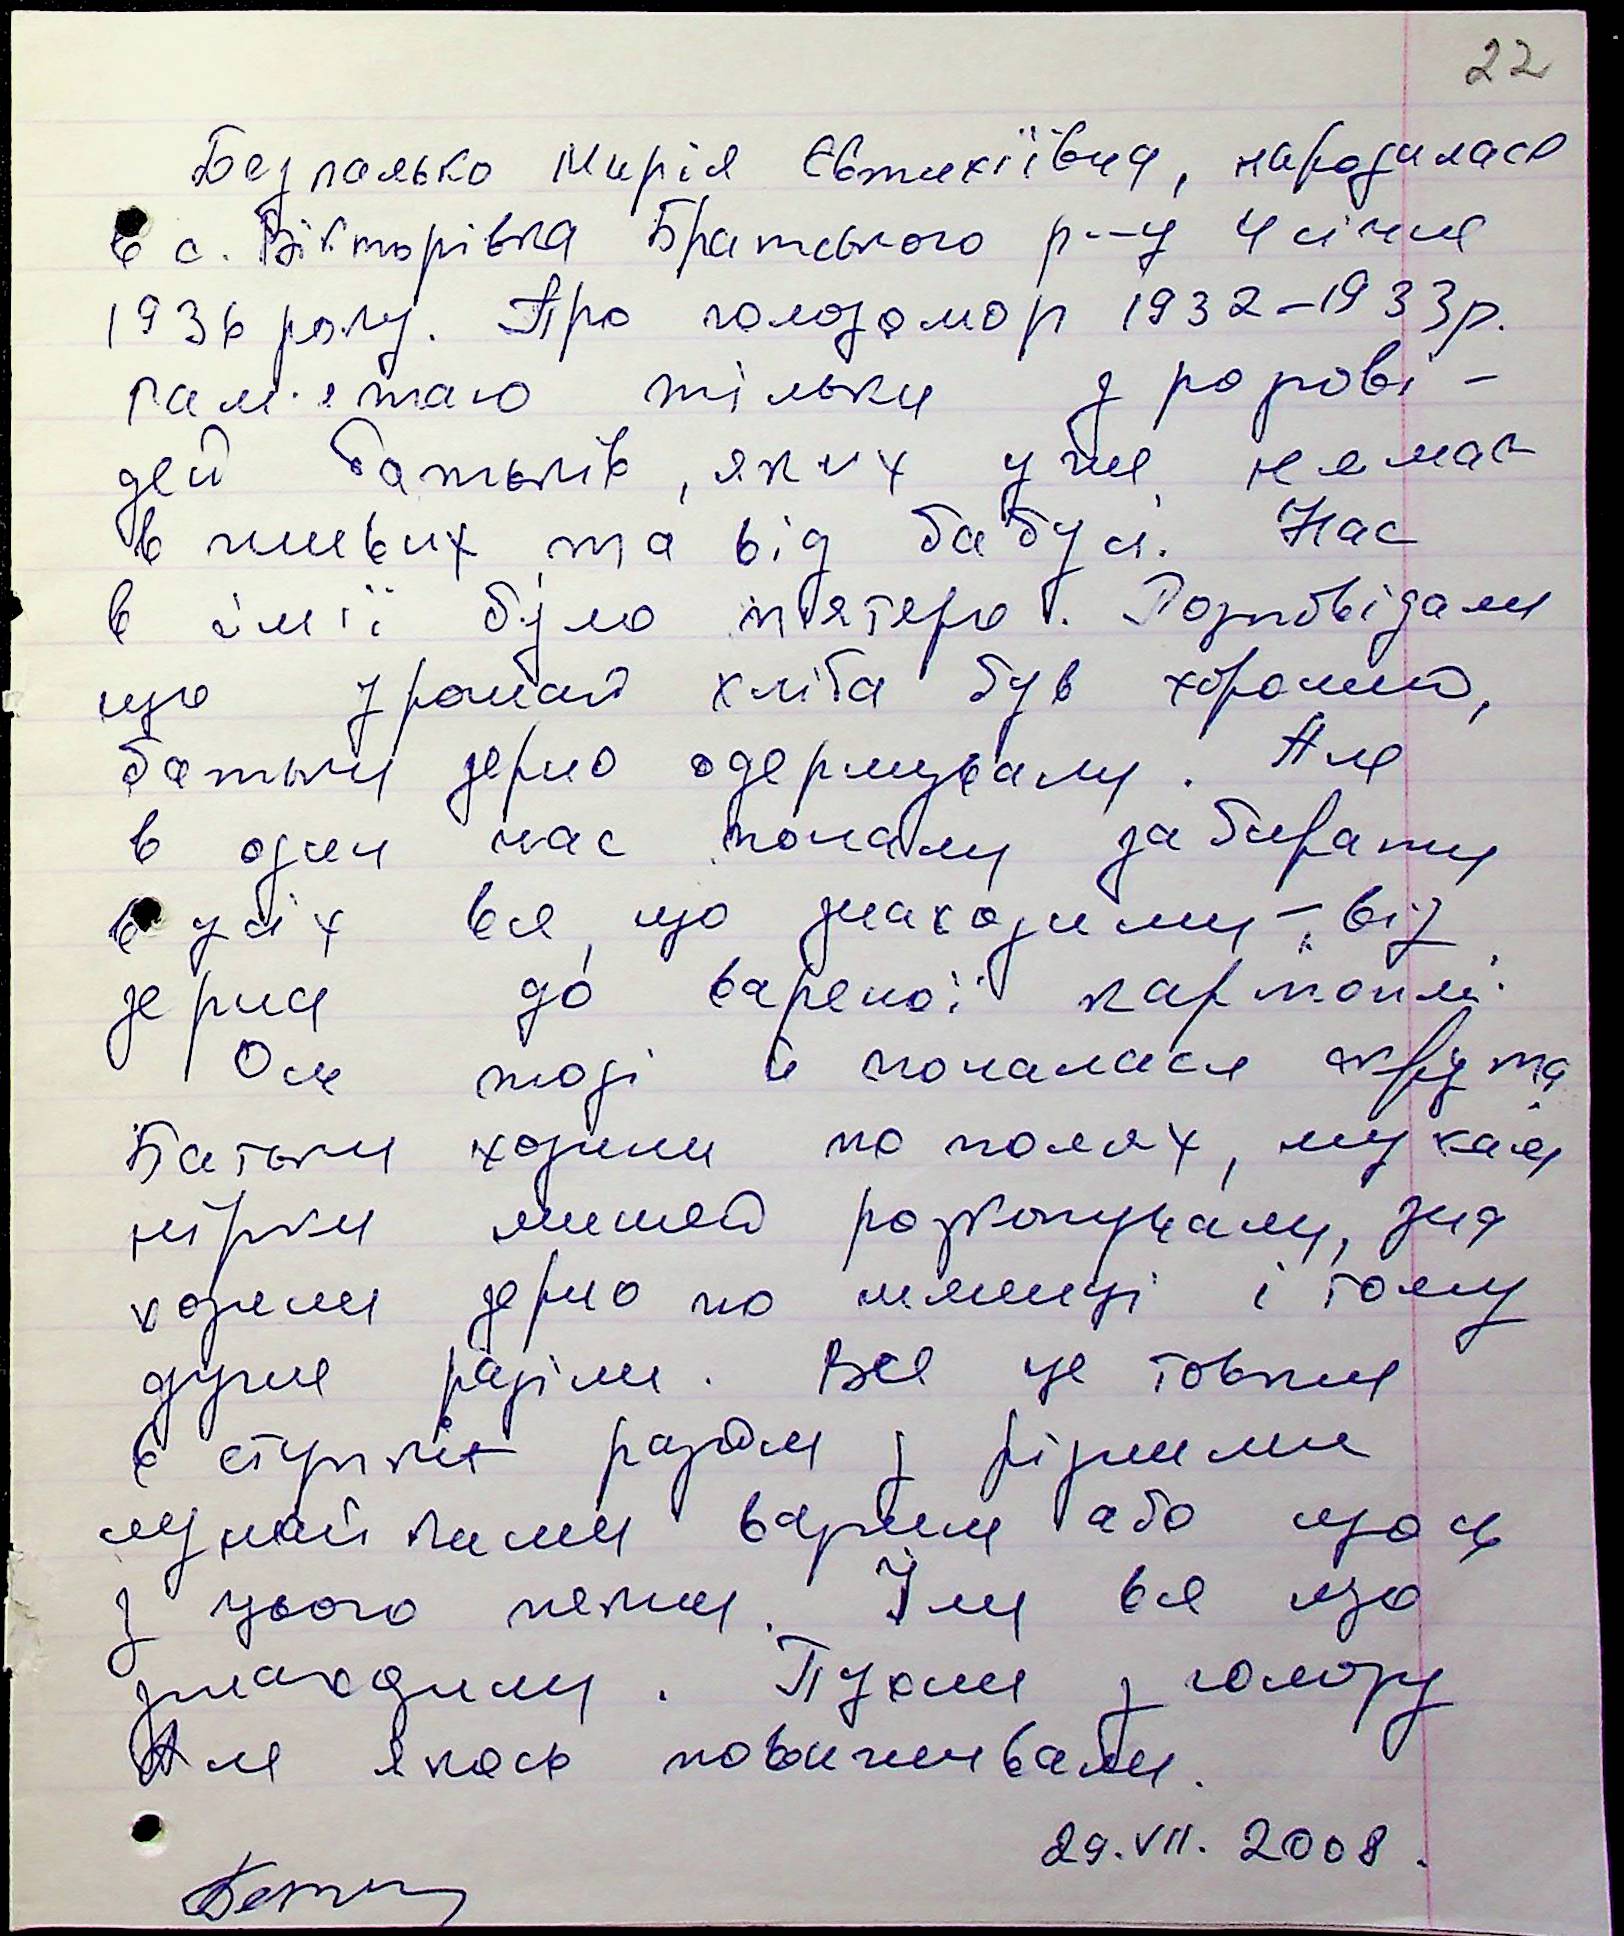 22
Безпалько Марія Євтихіївна, народилась
в с. Вікторівка Братського р-ну 4 січня
1936 року. Про голодомор 1932-1933р.
пам'ятаю тільки з розпові-
дей батьків, яких уже немає
в живих та від бабусі. Нас
в сім'ї було п'ятеро. Розповідали
що урожай хліба був хороший,
батьки зерно одержували. Але
в один час почали забирати
в усіх все, що знаходили - від
зерна до вареної картоплі.
Ось тоді й почалася скрута
Батьки ходили по полях, шукали
нірки мишей розкопували, зна
ходили зерно по жменці і тому
дуже раділи. Все це товкли
в ступках разом з різними
лушпайками варили або щось
з цього пекли. Їли все що
знаходили. Пухли з голоду
Але якось повиживали.
29.VII.2008.